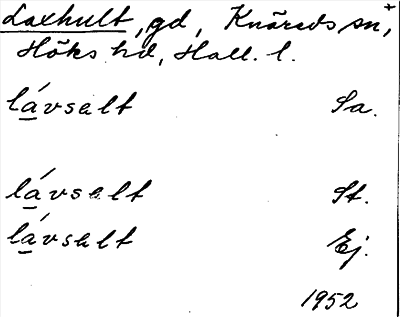 Laxhult, gd, Knäreds sn,+
Höks hd, Hall. l.
lá̱vsalt Sa.
lá̱vsalt St.
lá̱vsalt Ej.
1952